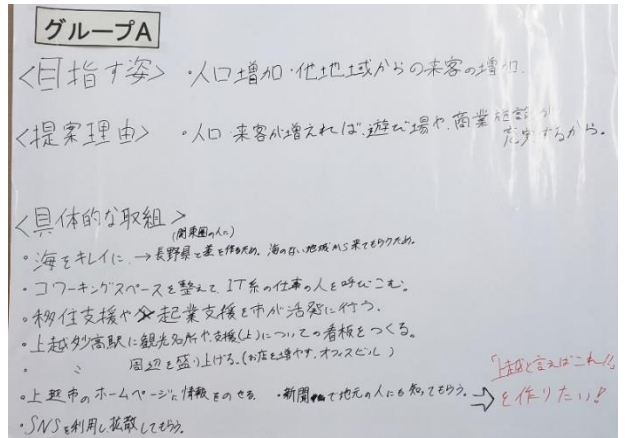 グループA
<目指す姿> ・人口増加・他地域からの来客の増加.
<提案理由> ・人口・来客が増えれば、遊び場や、商業施設が
充実するから。
<具体的な取組>
(関東圏の人に)
・海をキレイに → 長野県と差を作るため。海のない地域から来てもらうため。
・コワーキングスペースを整えて、IT系の仕事の人を呼びこむ。
・移住支援や起業支援を市が活発に行う。
・上越妙高駅に観光名所や、支援(上)についての看板をつくる。
・ 〃 周辺を盛り上げる。(お店を増やす、オフィスビル)
・上越市のホームページに情報をのせる. ・新聞で地元の人にも知ってもらう。
・SNSを利用し拡散してもらう。
⇒ 「上越と言えばこれ!!」
を作りたい!